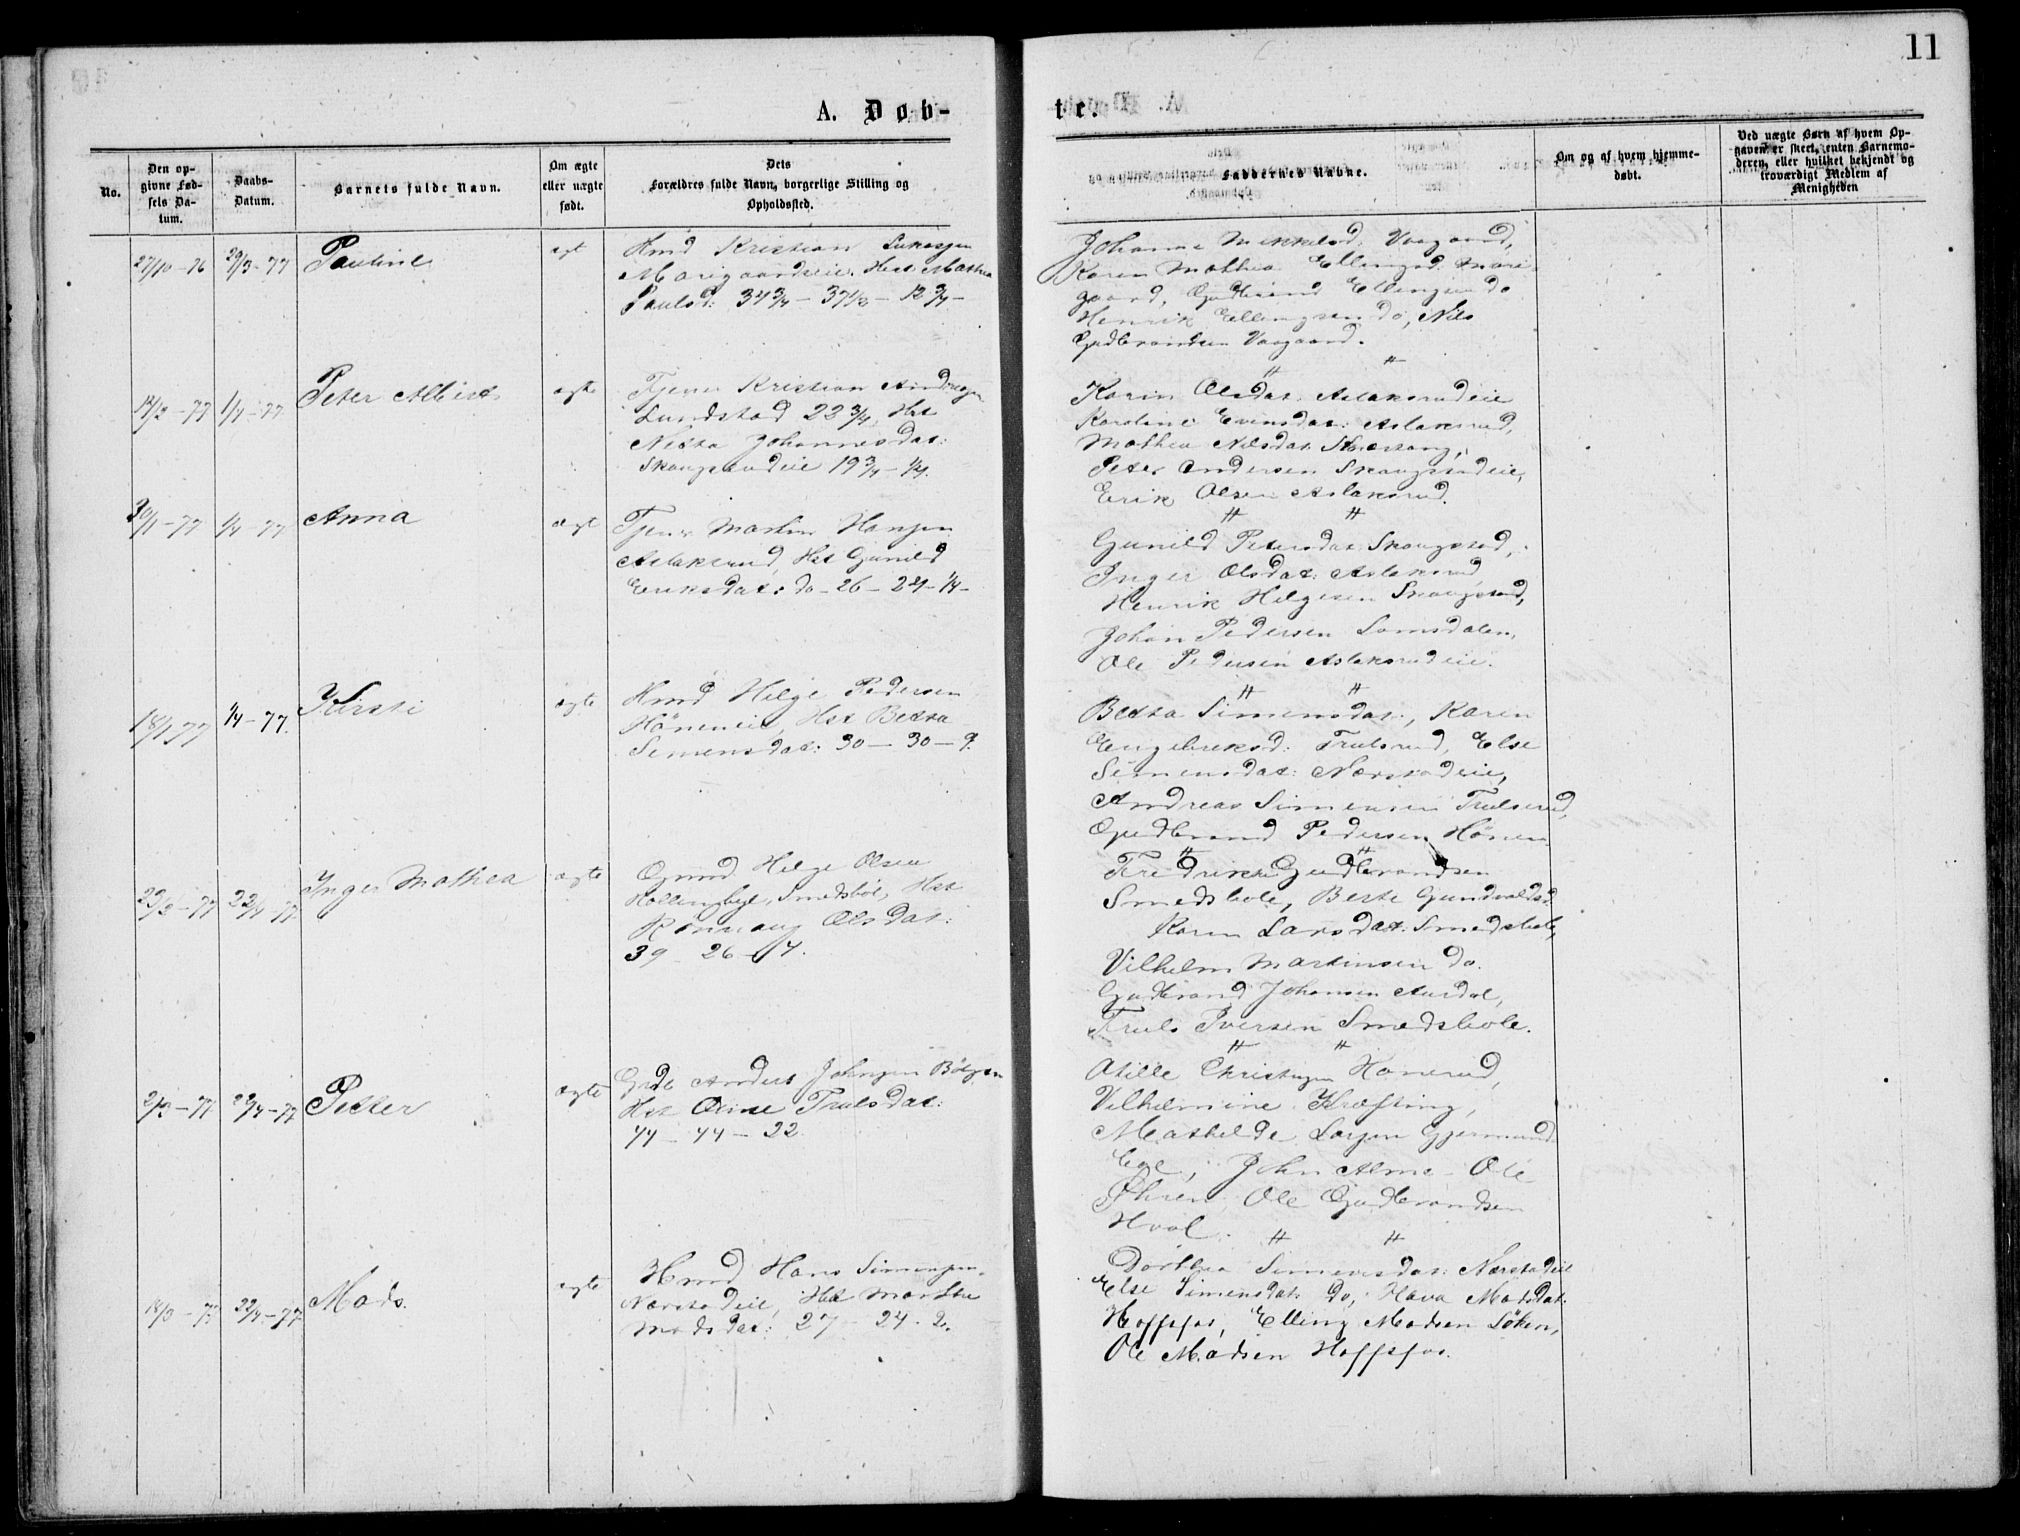 11
A. Døb-
te.
No.
Den op-
givne Fød-
sels Da-
tum.
Daabs-
Datum.
Barnets fulde Navn.
Om ægte
eller uægte
født.
Dets
Forældres fulde Navn, borgerlige Stilling og
Opholdssted.
Faddernes Navne.
Om og af hvem hjemme-
døbt.
Ved uægte Børn af hvem Op-
gaven er skeet, enten Barnemo-
deren, eller hvilket bekjendt og
troværdigt Medlem af
Menigheden
27/10-76
29/3-77
Pauline
Hmd Kristian
Marigaardseie, Hst Mathea
Paulsd: 34 3/4 - 37 1/2 - 12 3/4 -
Johanne Mikkelsd. Vaagaard,
Karen Mathea Ellingsd. Mari-
gaard, Gudbrand Ellingsen do
Henrik Ellingsen do, Nils
Gudbrandsen Vaagaard.
1/4-77
Peter Albert
ægte
Tjener Kristian
Lundstad 22 3/4, Hst
Johannesdat:
19 3/4 - 1/4.
Karin Olsdat. Aslaksrudeie
Karoline Evensdat: Aslaksrud,
Mathea Nilsdat.
Peter Andersen
Erik Olsen Aslaksrud.
30/1-77
1/4-77
Anna
ægte
Tjener Martin Hansen
Aslaksrud, Hst Gunild
Eriksdat: do - 26 - 24 - 1/4 -
Gunild Petersdat: Skougstad,
Inger Olsdat: Aslaksrud,
Henrik Helgesen Skougstad,
Johan Pedersen Lomsdalen,
Ole Pedersen Aslaksrudeie.
18/1 77
1/4-77.
Kirsti
ægte
Hmd Helge Pedersen
Höneneie, Hst Berta
Simensdat: 30 - 30 - 9.
Berta Simensdat., Karen
Engebretsd: Trulsrud, Else
Simensdat: Nærstadeie,
Andreas Simensen Trulserud,
Gudbrand Pedersen Hönen
22/4-77
Inger Mathea
ægte
Gmd Helge Olsen
Hollingbye, Smedsböl, Hst
Rönnaug Olsdat:
39 - 26 - 7.
Fredrikke Gudbrandsen
Smedsbole, Berte Gundvaldsd.
Karen Larsdat: Smedsbole,
Vilhelm Martinsen do.
Gudbrand Johansen
Truls Iversen Smedsbole.
22/4-77
Petter
ægte
Anders Johnsen
Hst Oline Trulsdat:
44 - 44 - 22
Christensen Honerud,
Vilhelmine Kræfting,
Mathilde Larsen Gjermund
Ege, John Alme - Ole
Öhren, Ole Gudbrandsen
Hval.
18/3-77
22/4-77
Mads.
ægte
Hmd Hans Simensen
Nærstadeie, Hst Marthe
Madsdat: 27 - 24 - 2.
Dorthea Simensdat: Nærstadeie
Else Simensdat: do, Madsdat:
Hoffsfos, Elling Madsen Söhen,
Ole Madsen Hoffsfos.